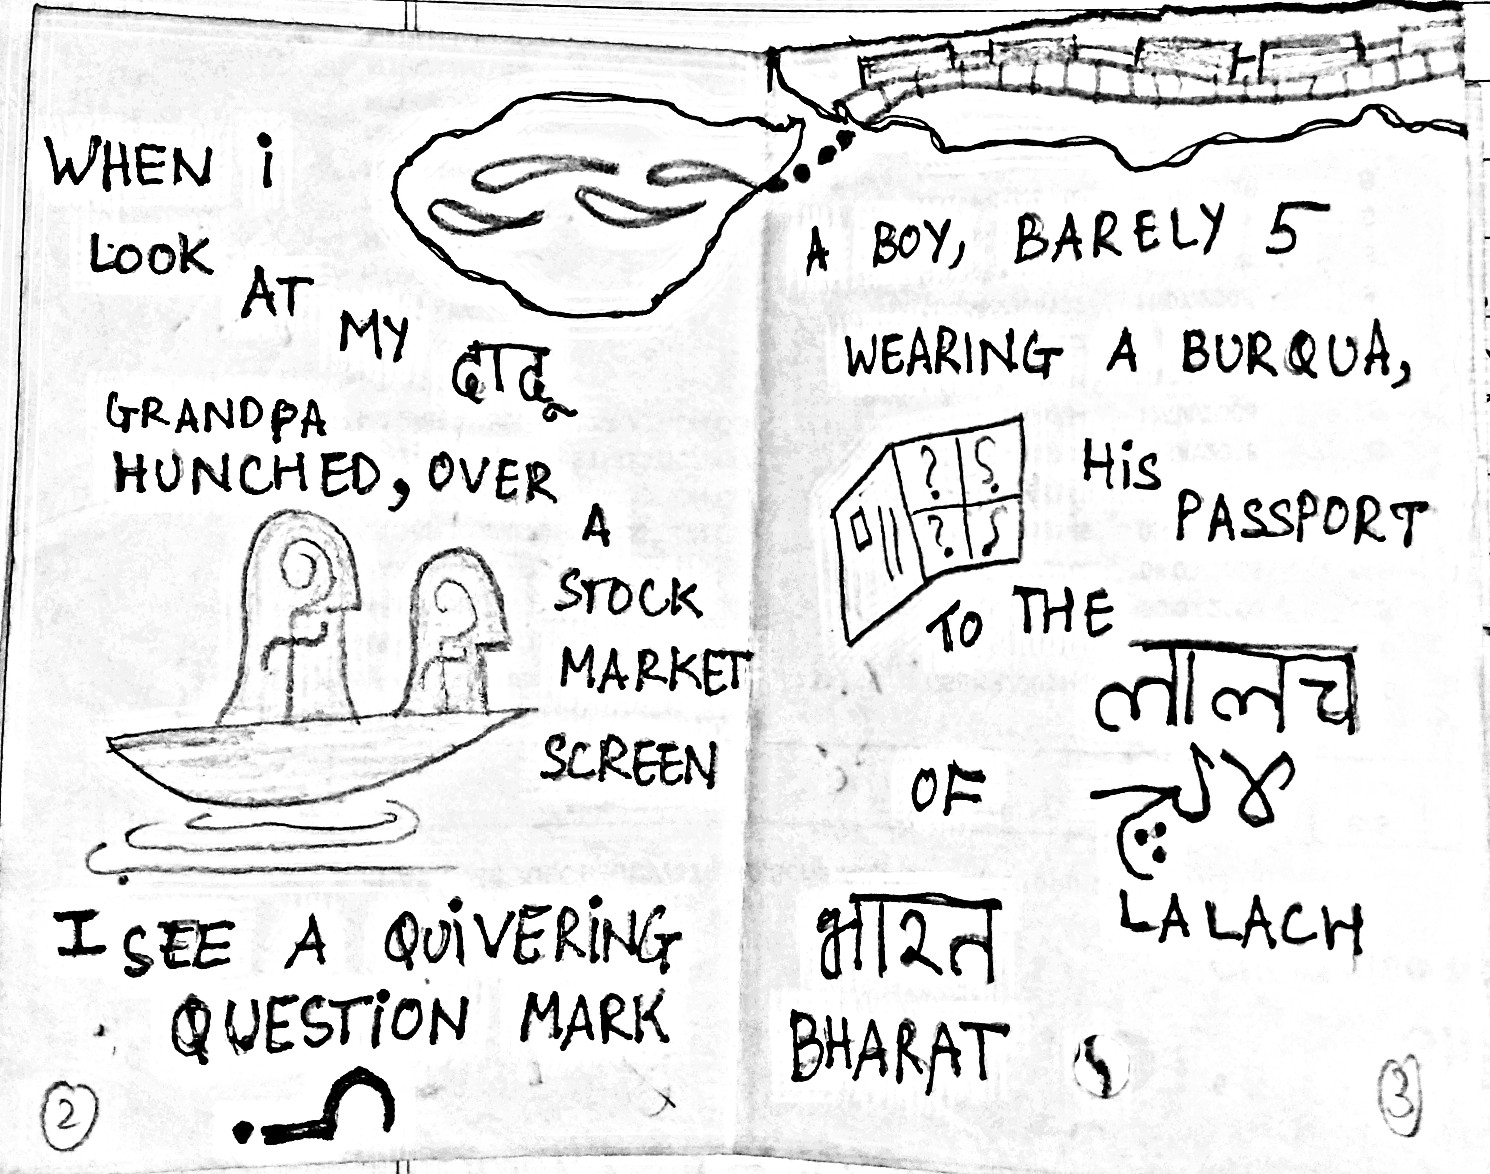 WHEN i
LOOK
AT
MY दादू
GRANDPA
HUNCHED, OVER
A
STOCK
MARKET
SCREEN
I SEE A QUiVERiNG
QUESTiON MARK
?
2
A BOY, BARELY 5
WEARING A BURQUA,
? ؟
? ؟
HiS
PASSPORT
TO THE
लालच
لالچ
LALACH
OF
भारत
BHARAT
3